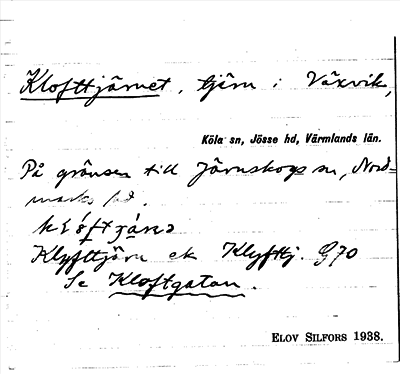 Klofttjärnet, tjärn i Växvik,
Köla sn, Jösse hd, Värmlands län.
På gränsen till Järnskogs sn, Nord-
marks hd.
Klyfttjärn ek Klyfttj. G70
Se Kloftgatan.
ELOV SILFORS 1938.